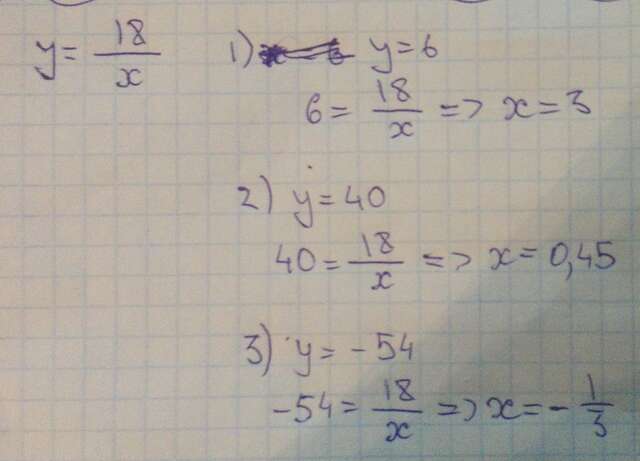 y = 18/x
1) y = 6
6 = 18/x => x = 3
2) y = 40
40 = 18/x => x = 0,45
3) y = -54
-54 = 18/x => x = -1/3